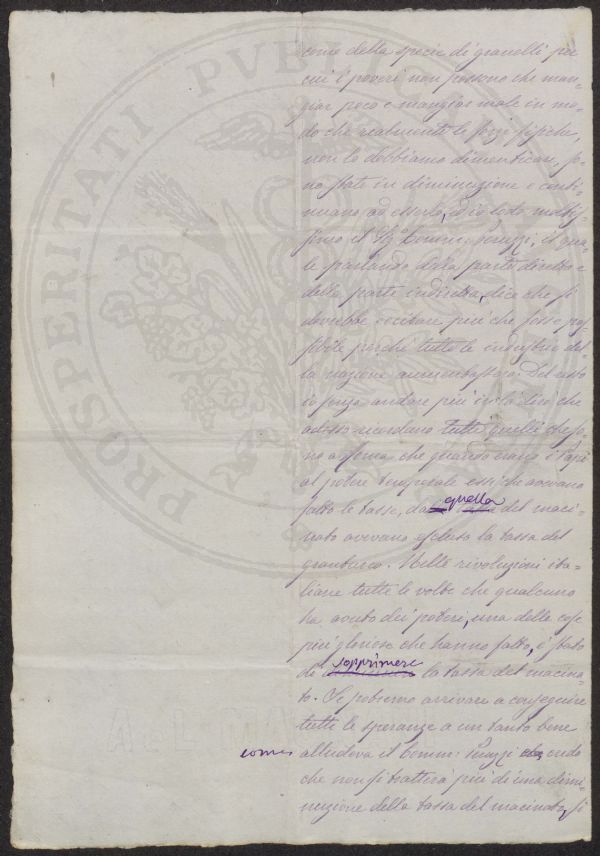 come della specie di granelli per
cui i poveri non possono che man-
giar poco e mangiar male in mo-
do che realmente le forze fisiche,
non lo dobbiamo dimenticare, so-
no state in diminuzione e conti-
nuano ad esserlo, ed io lodo moltis-
simo il Comm. Peruzzi, il qua-
le parlando della parte diretta e
della parte indiretta, dice che si
dovrebbe eccitare più che fosse pos-
sibile perché tutte le industrie del-
la nazione aumentassero. Del resto
senza andare più in là dirò che
adesso ricordano tutti quelli che so-
no a Roma che quando erano i Papi
al potere temporale essi che avevano
fatto le tasse, da quella del maci-
nato avevano escluso la tassa del
granturco. Nelle rivoluzioni ita-
liane tutte le volte che qualcuno
ha avuto dei poteri, una delle cose
più gloriose che hanno fatto, è stato
di sopprimere la tassa del macina-
to. Se potremo arrivare a conseguire
tutte le speranze a un tanto bene
come alludeva il Comm: Peruzzi credo
che non si tratterà più di una dimi-
nuzione della tassa del macinato, si
PROSPERITATI PVBLICAE